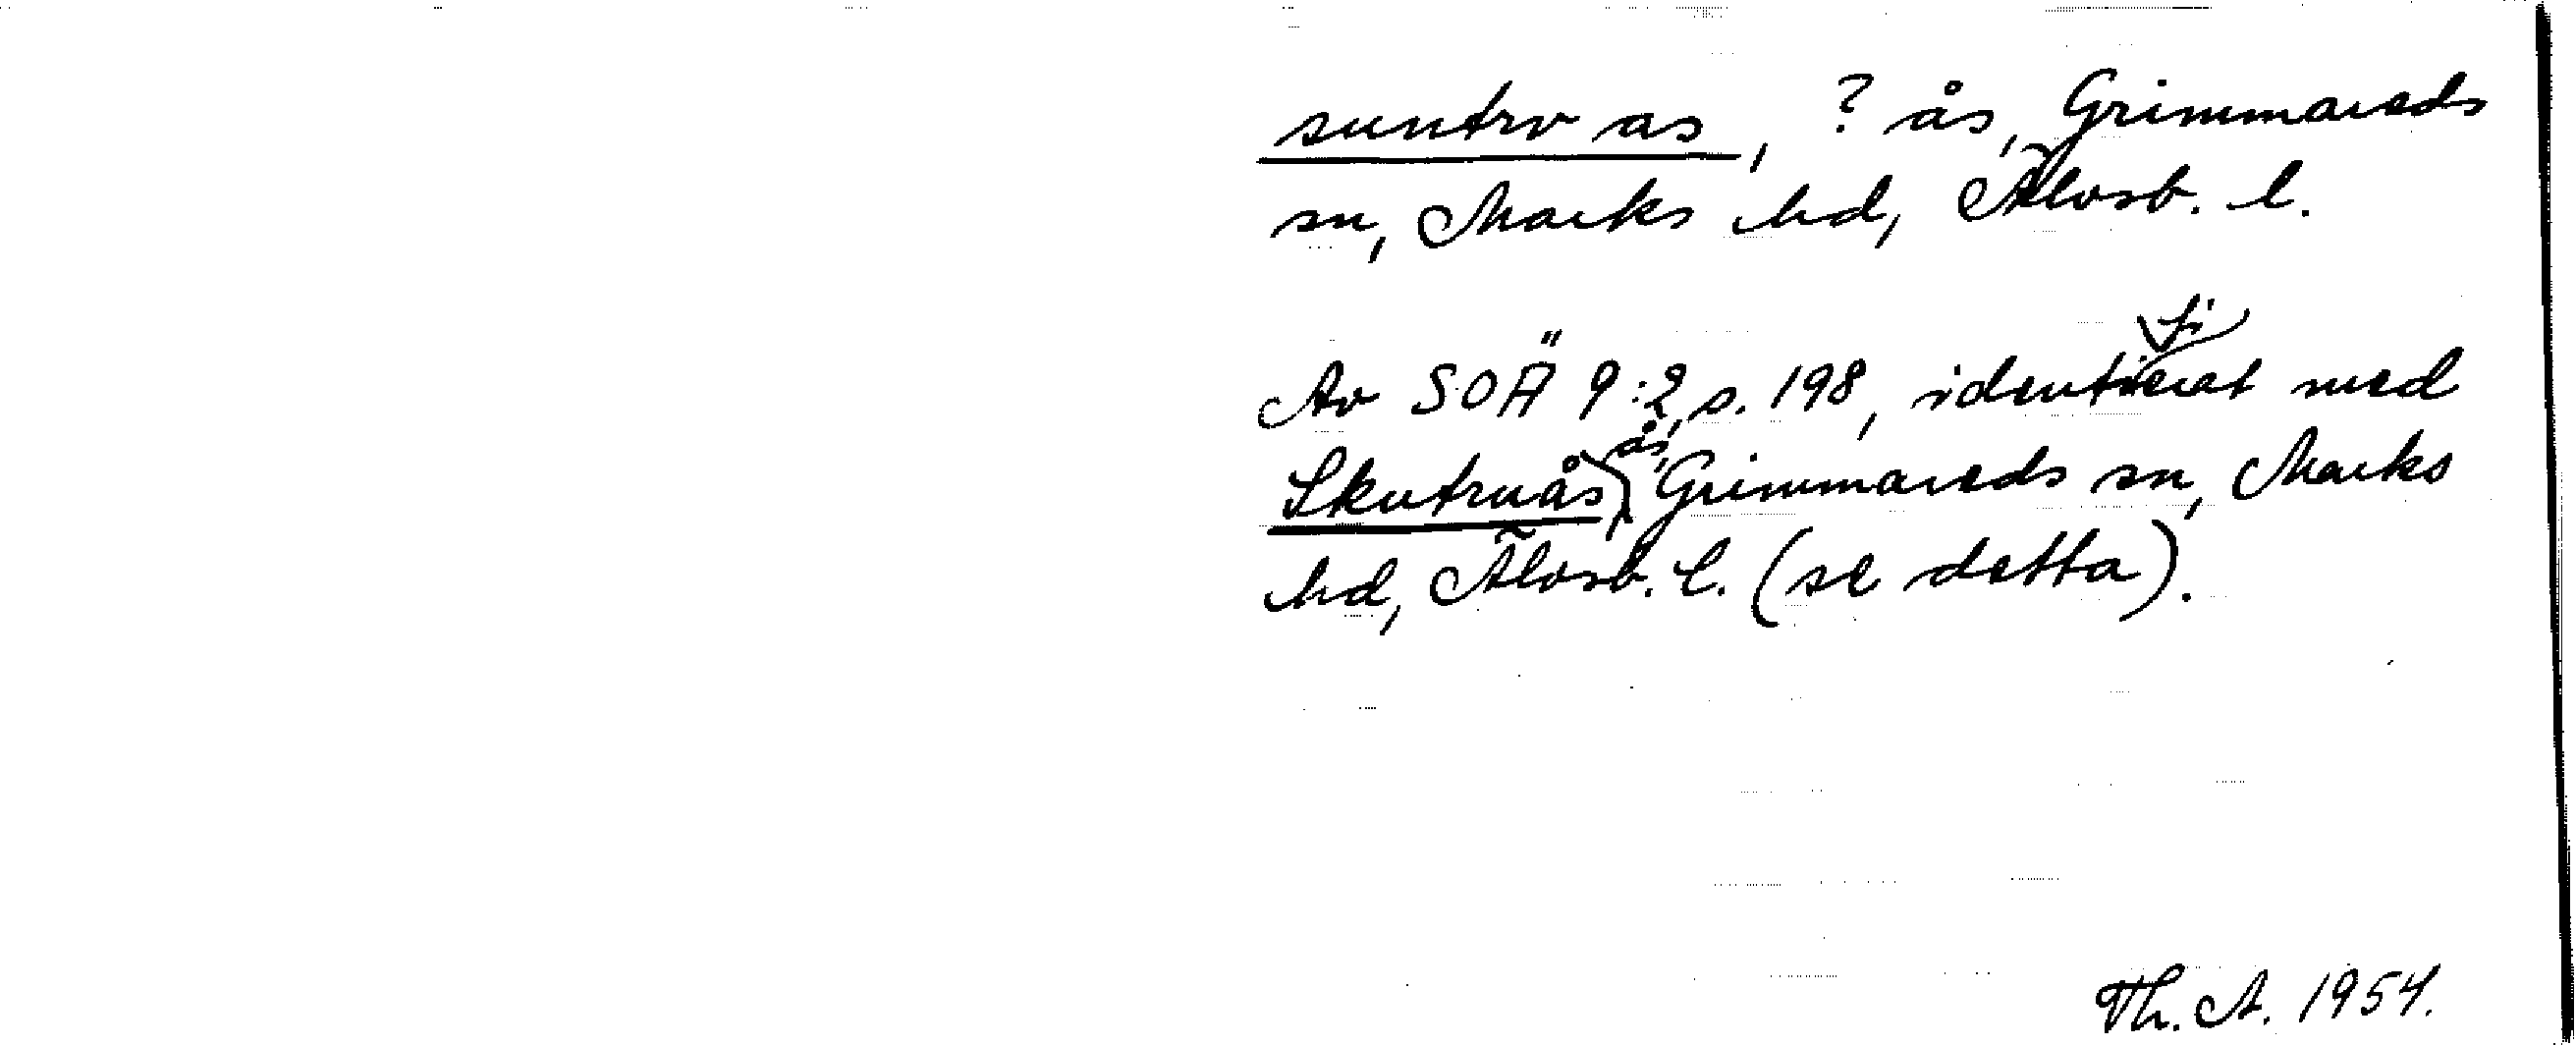 suntrv as, ? ås, Grimmareds
sn, Marks hd, Älvsb. l.
Av SOÄ 9:2, s. 198, identifierat med
Skutruås, ås, Grimmareds sn, Marks
hd, Älvsb. l. (se detta).
Th. A. 1954.